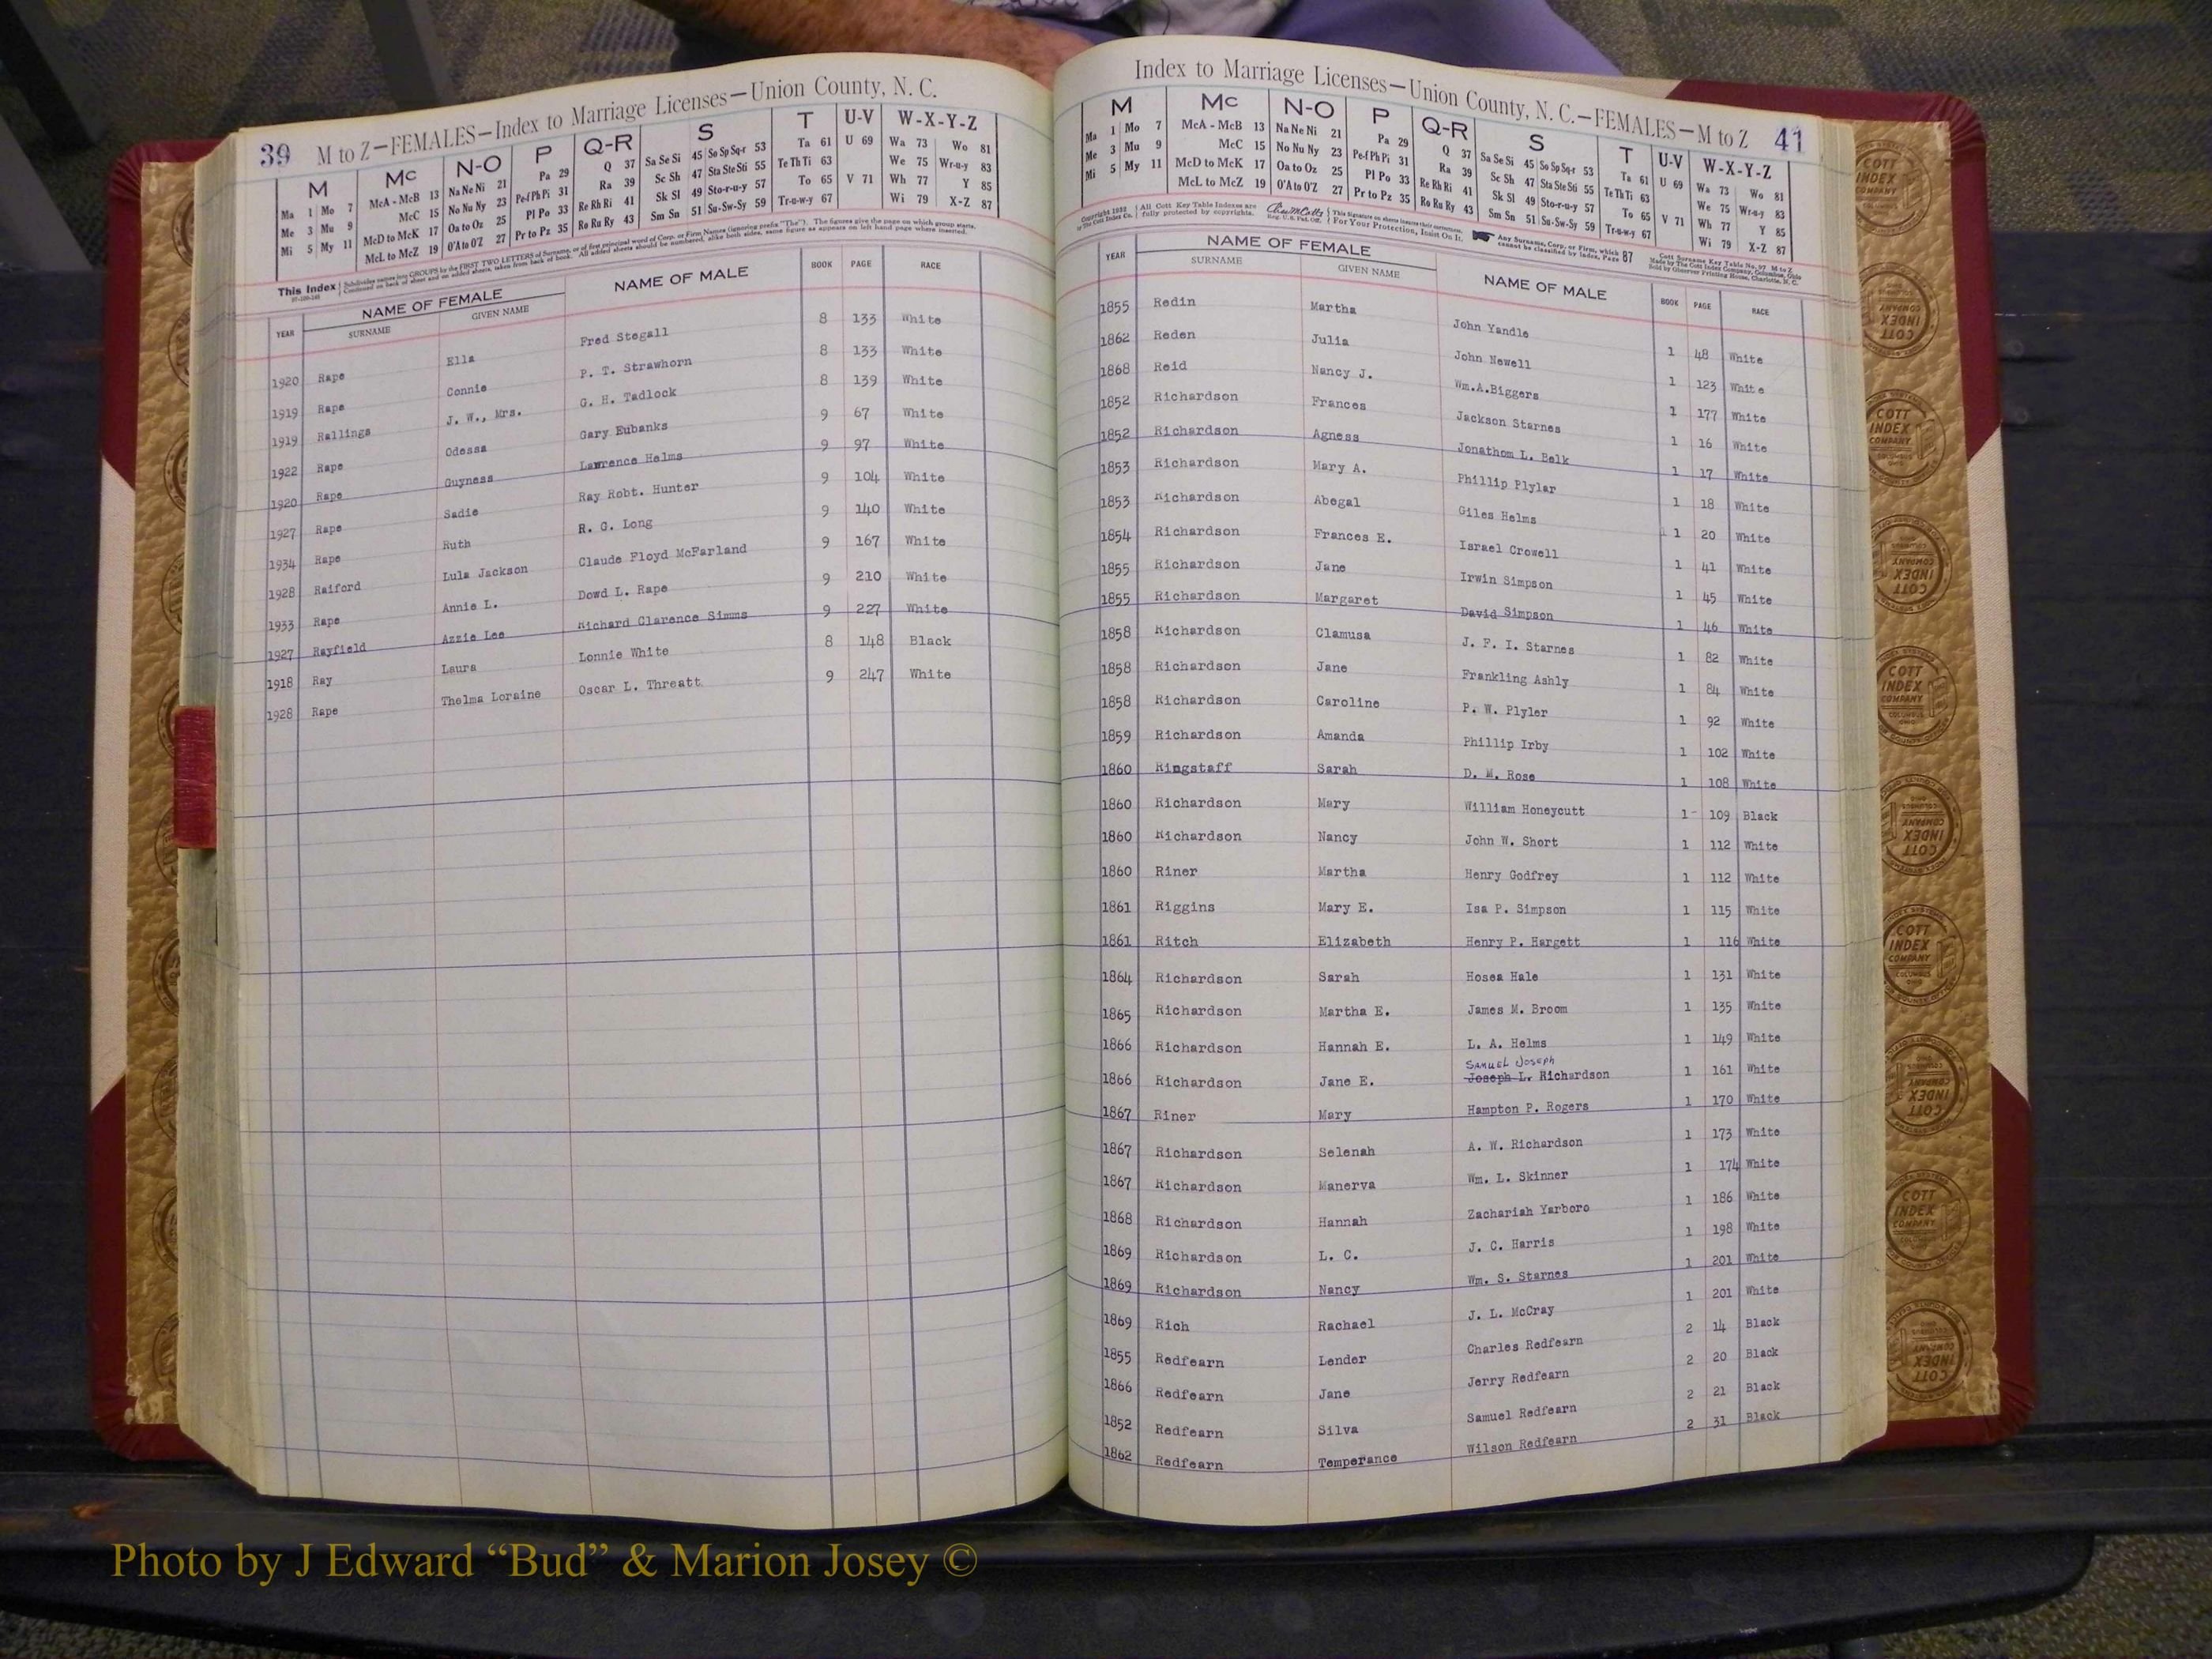 39 M to Z—FEMALES—Index to Marriage Licenses—Union County, N. C.
M Mc N-O P Q-R S T U-V W-X-Y-Z
Ma 1 Mo 7 McA - McB 13 Na Ne Ni 21 Pa 29 Q 37 Sa Se Si 45 So Sp Sq-r 53 Ta 61 U 69 Wa 73 Wo 81
Me 3 Mu 9 McC 15 No Nu Ny 23 Pe-f Ph Pi 31 Ra 39 Sc Sh 47 Sta Ste Sti 55 Te Th Ti 63 We 75 Wr-u-y 83
Mi 5 My 11 McD to McK 17 Oa to Oz 25 Pl Po 33 Re Rh Ri 41 Sk Sl 49 Sto-r-u-y 57 To 65 V 71 Wh 77 Y 85
McL to McZ 19 O'A to O'Z 27 Pr to Pz 35 Ro Ru Ry 43 Sm Sn 51 Su-Sw-Sy 59 Tr-u-w-y 67 Wi 79 X-Z 87
This Index Subdivides names into GROUPS by the FIRST TWO LETTERS of Surname, or of first principal word of Corp. or Firm Names (ignoring prefix "The"). The figures give the page on which group starts.
Continued on back of sheet and on added sheets, taken from back of book. All added sheets should be numbered, alike both sides, same figure as appears on left hand page where inserted.
YEAR NAME OF FEMALE SURNAME GIVEN NAME NAME OF MALE BOOK PAGE RACE
1920 Rape Ella Fred Stegall 8 133 White
1919 Rape Connie P. T. Strawhorn 8 133 White
1919 Rallings J. W., Mrs. G. H. Tadlock 8 139 White
1922 Rape Odessa Gary Eubanks 9 67 White
1920 Rape Guyness Lawrence Helms 9 97 White
1927 Rape Sadie Ray Robt. Hunter 9 104 White
1934 Rape Ruth R. G. Long 9 140 White
1928 Raiford Lula Jackson Claude Floyd McFarland 9 167 White
1933 Rape Annie L. Dowd L. Rape 9 210 White
1927 Rayfield Azzie Lee Richard Clarence Simms 9 227 White
1918 Ray Laura Lonnie White 8 148 Black
1928 Rape Thelma Loraine Oscar L. Threatt 9 247 White
Index to Marriage Licenses—Union County, N. C.—FEMALES—M to Z 41
M Mc N-O P Q-R S T U-V W-X-Y-Z
Ma 1 Mo 7 McA - McB 13 Na Ne Ni 21 Pa 29 Q 37 Sa Se Si 45 So Sp Sq-r 53 Ta 61 U 69 Wa 73 Wo 81
Me 3 Mu 9 McC 15 No Nu Ny 23 Pe-f Ph Pi 31 Ra 39 Sc Sh 47 Sta Ste Sti 55 Te Th Ti 63 We 75 Wr-u-y 83
Mi 5 My 11 McD to McK 17 Oa to Oz 25 Pl Po 33 Re Rh Ri 41 Sk Sl 49 Sto-r-u-y 57 To 65 V 71 Wh 77 Y 85
McL to McZ 19 O'A to O'Z 27 Pr to Pz 35 Ro Ru Ry 43 Sm Sn 51 Su-Sw-Sy 59 Tr-u-w-y 67 Wi 79 X-Z 87
All Cott Key Table Indexes are fully protected by copyrights. For Your Protection, Insist On It. Any Surname, Corp. or Firm, which cannot be classified by Index, Page 87
YEAR NAME OF FEMALE SURNAME GIVEN NAME NAME OF MALE BOOK PAGE RACE
1855 Redin Martha John Yandle 1 48 White
1862 Reden Julia John Newell 1 123 White
1868 Reid Nancy J. Wm.A.Biggers 1 177 White
1852 Richardson Frances Jackson Starnes 1 16 White
1852 Richardson Agness Jonathom L. Belk 1 17 White
1853 Richardson Mary A. Phillip Plylar 1 18 White
1853 Richardson Abegal Giles Helms 1 20 White
1854 Richardson Frances E. Israel Crowell 1 41 White
1855 Richardson Jane Irwin Simpson 1 45 White
1855 Richardson Margaret David Simpson 1 46 White
1858 Richardson Clamusa J. F. I. Starnes 1 82 White
1858 Richardson Jane Frankling Ashly 1 84 White
1858 Richardson Caroline P. W. Plyler 1 92 White
1859 Richardson Amanda Phillip Irby 1 102 White
1860 Ringstaff Sarah D. M. Rose 1 108 White
1860 Richardson Mary William Honeycutt 1 109 Black
1860 Richardson Nancy John W. Short 1 112 White
1860 Riner Martha Henry Godfrey 1 112 White
1861 Riggins Mary E. Isa P. Simpson 1 115 White
1861 Ritch Elizabeth Henry P. Hargett 1 116 White
1864 Richardson Sarah Hosea Hale 1 131 White
1865 Richardson Martha E. James M. Broom 1 135 White
1866 Richardson Hannah E. L. A. Helms 1 149 White
SAMUEL JOSEPH
1866 Richardson Jane E. Joseph L. Richardson 1 161 White
1867 Riner Mary Hampton P. Rogers 1 170 White
1867 Richardson Selenah A. W. Richardson 1 173 White
1867 Richardson Manerva Wm. L. Skinner 1 174 White
1868 Richardson Hannah Zachariah Yarboro 1 186 White
1869 Richardson L. C. J. C. Harris 1 198 White
1869 Richardson Nancy Wm. S. Starnes 1 201 White
1869 Rich Rachael J. L. McCray 1 201 White
1855 Redfearn Lender Charles Redfearn 2 14 Black
1866 Redfearn Jane Jerry Redfearn 2 20 Black
1852 Redfearn Silva Samuel Redfearn 2 21 Black
1862 Redfearn Temperance Wilson Redfearn 2 31 Black
COTT INDEX COMPANY COLUMBUS OHIO
Photo by J Edward “Bud” & Marion Josey ©